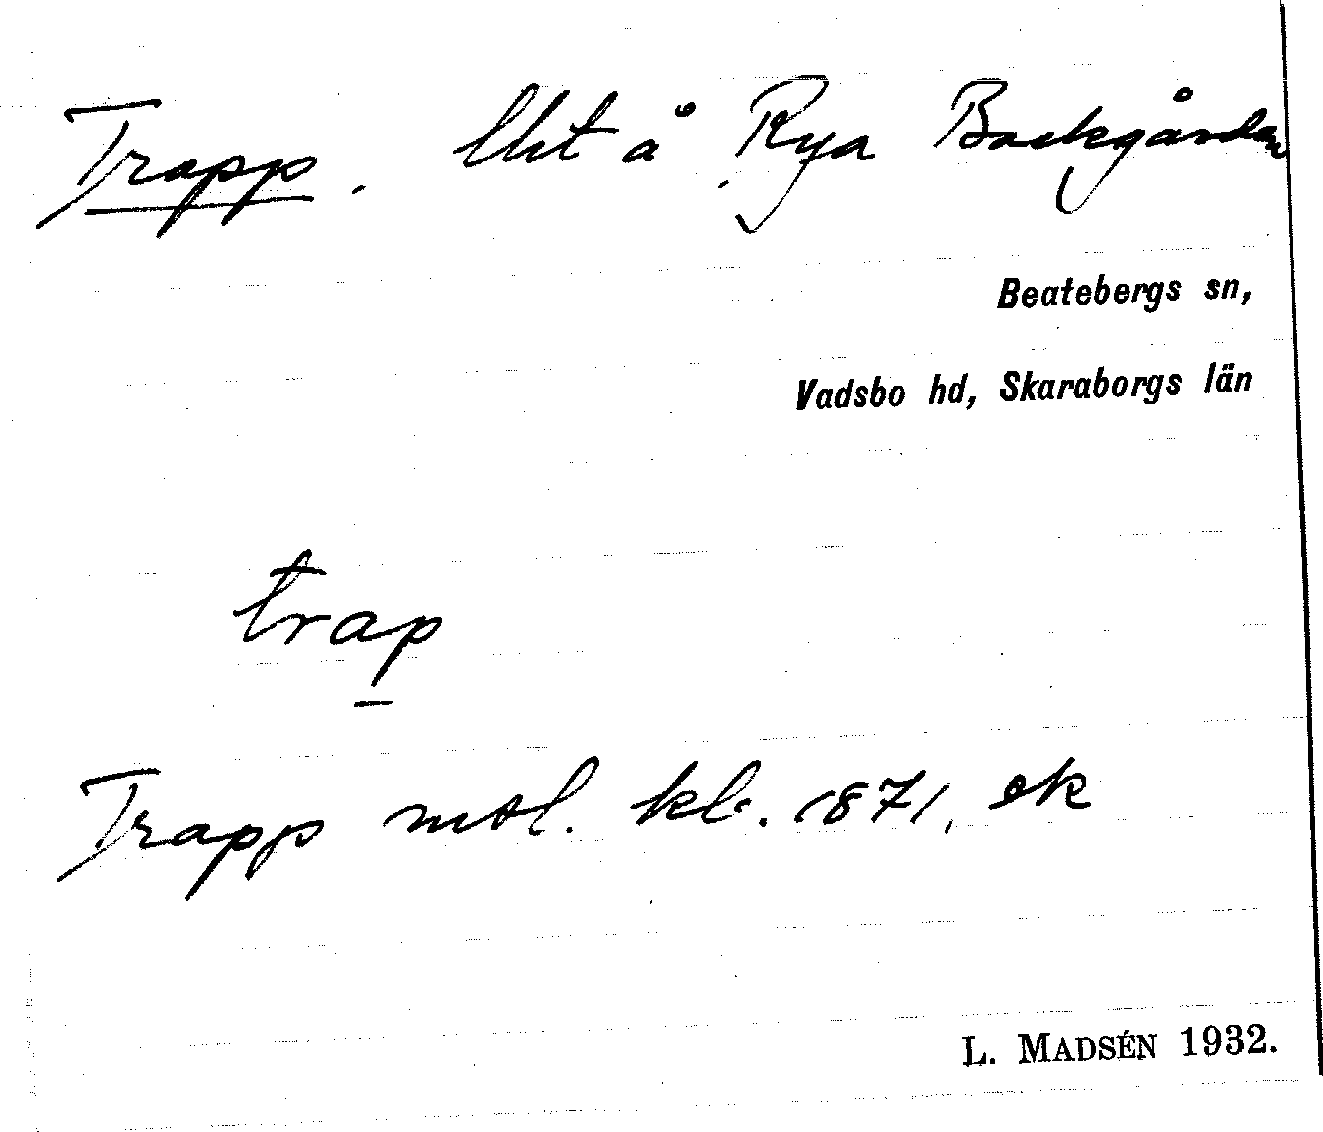 Trapp. lht å Rya Backgården
Beatebergs sn,
Vadsbo hd, Skaraborgs län
trap
Trapp mtl. kb. 1871, ek
L. MADSÉN 1932.